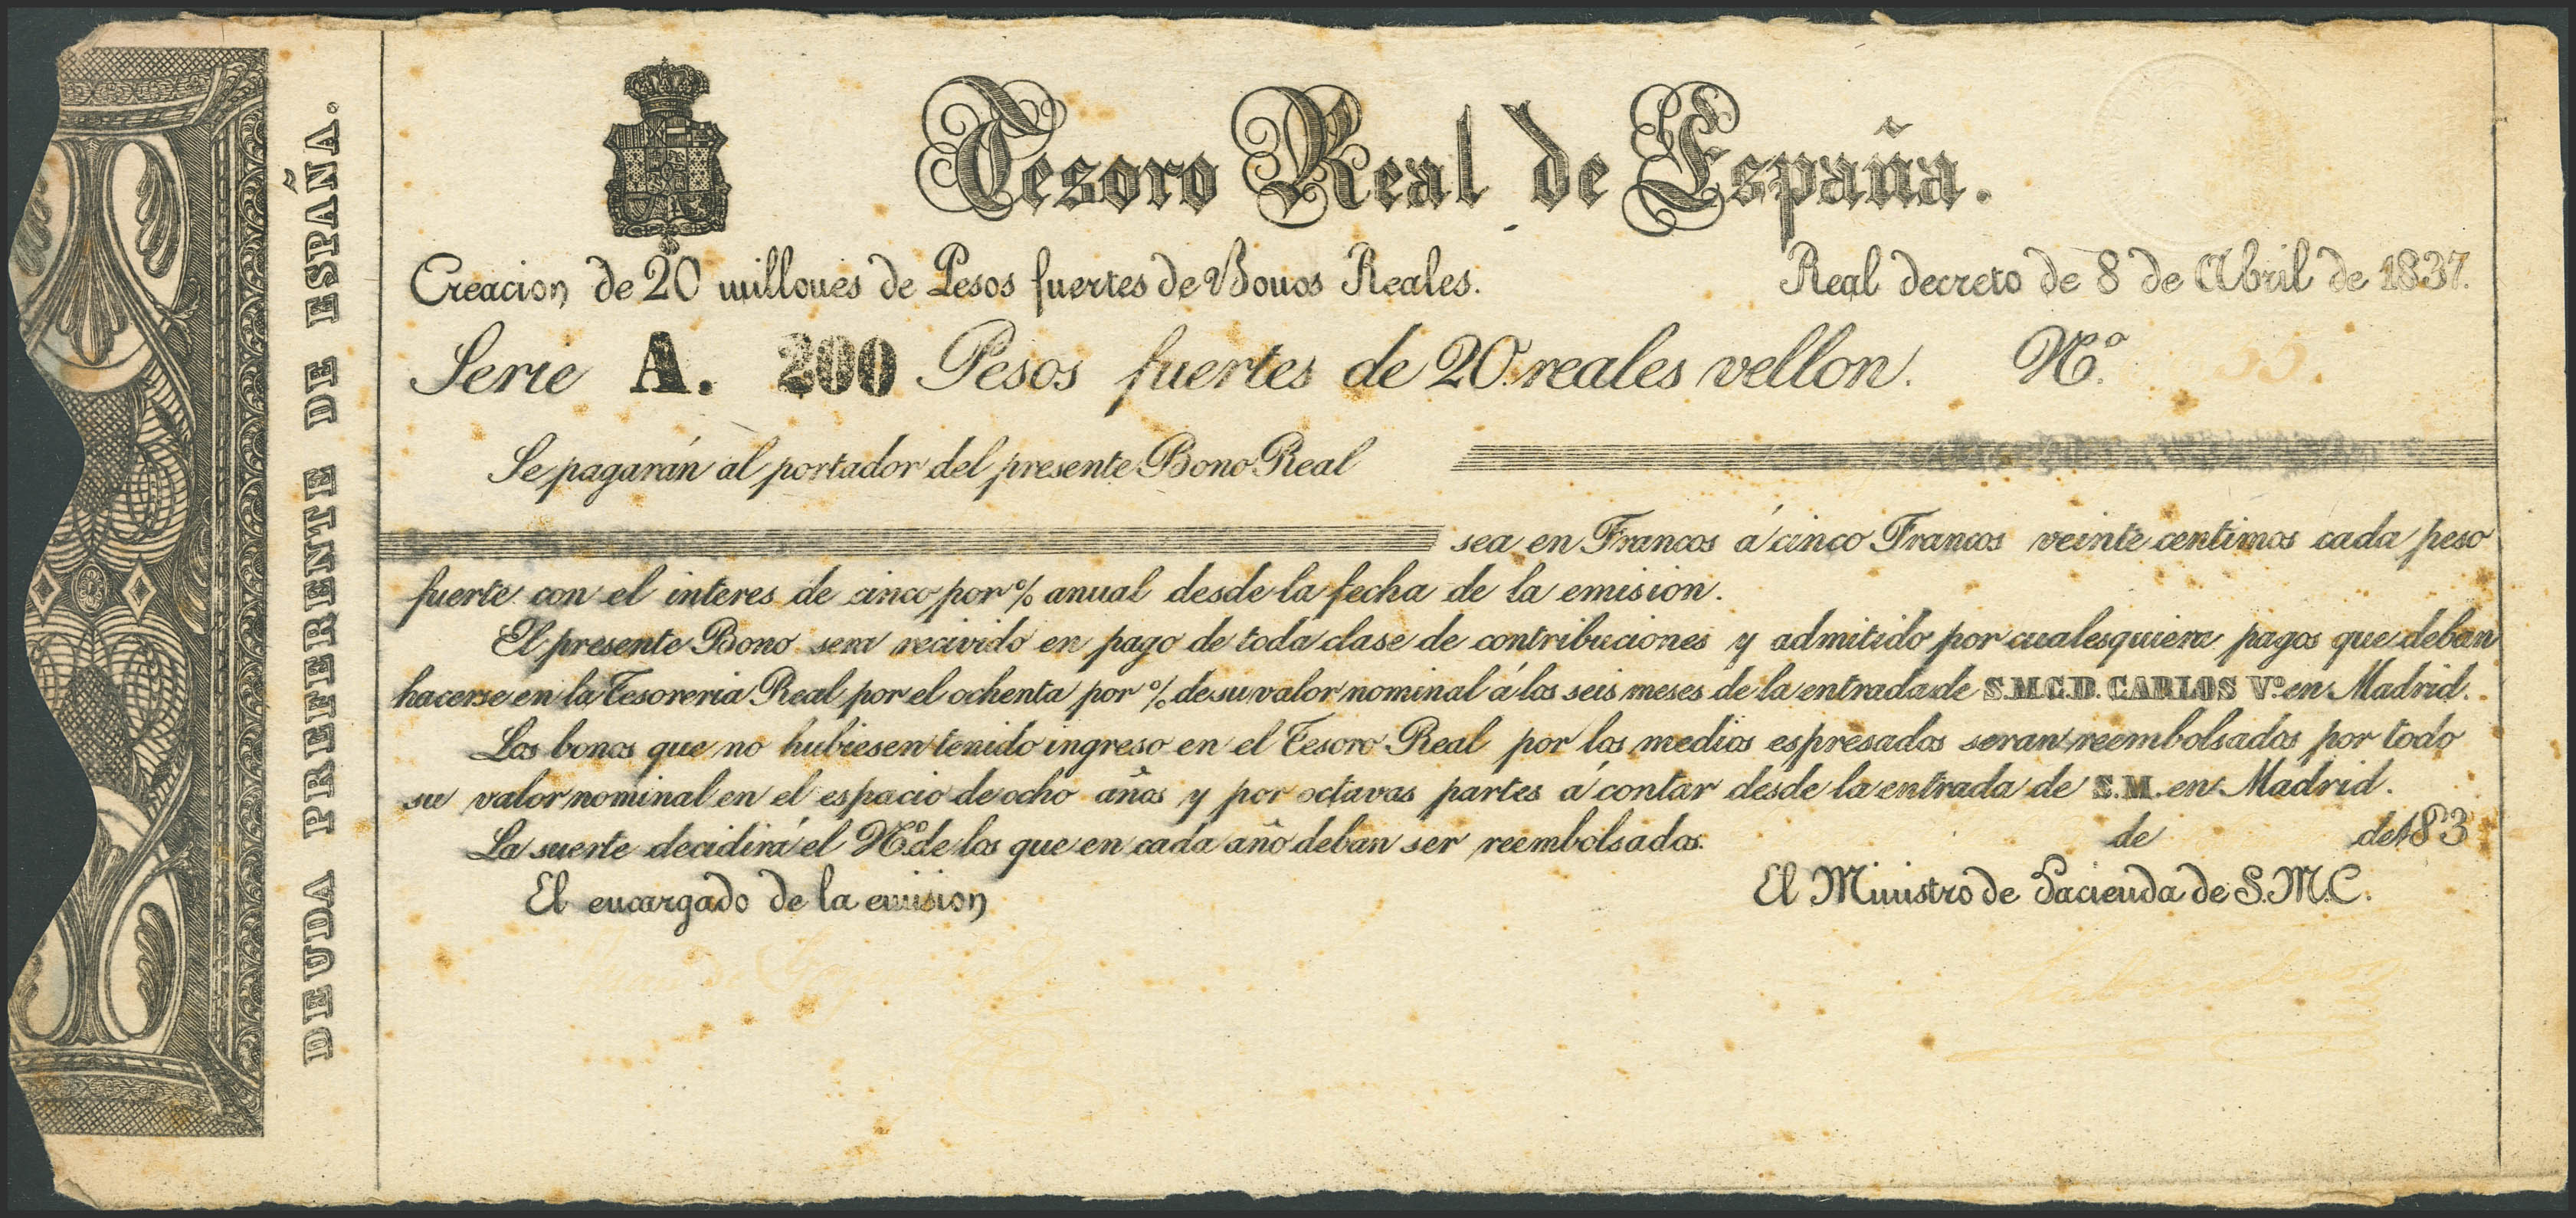 DEUDA PREFERENTE DE ESPAÑA.
Tesoro Real de España.
Creacion de 20 millones de Pesos fuertes de Bonos Reales.
Real decreto de 8 de Abril de 1837.
Serie A. 200 Pesos fuertes de 20 reales vellon. Nº.
Se pagarán al portador del presente Bono Real
sea en Francos á cinco Francos veinte centimos cada peso
fuerte con el interes de cinco por % anual desde la fecha de la emision.
El presente Bono sera recivido en pago de toda clase de contribuciones y admitido por cualesquiera pagos que deban
hacerse en la Tesoreria Real por el ochenta por % de su valor nominal á los seis meses de la entrada de S.M.C.D. CARLOS Vº. en Madrid.
Los bonos que no hubiesen tenido ingreso en el Tesoro Real por los medios espresados seran reembolsados por todo
su valor nominal en el espacio de ocho años y por octavas partes á contar desde la entrada de S.M. en Madrid.
La suerte decidirá el Nº. de los que en cada año deban ser reembolsados.
de de 183
El encargado de la emision
El Ministro de Hacienda de S.M.C.